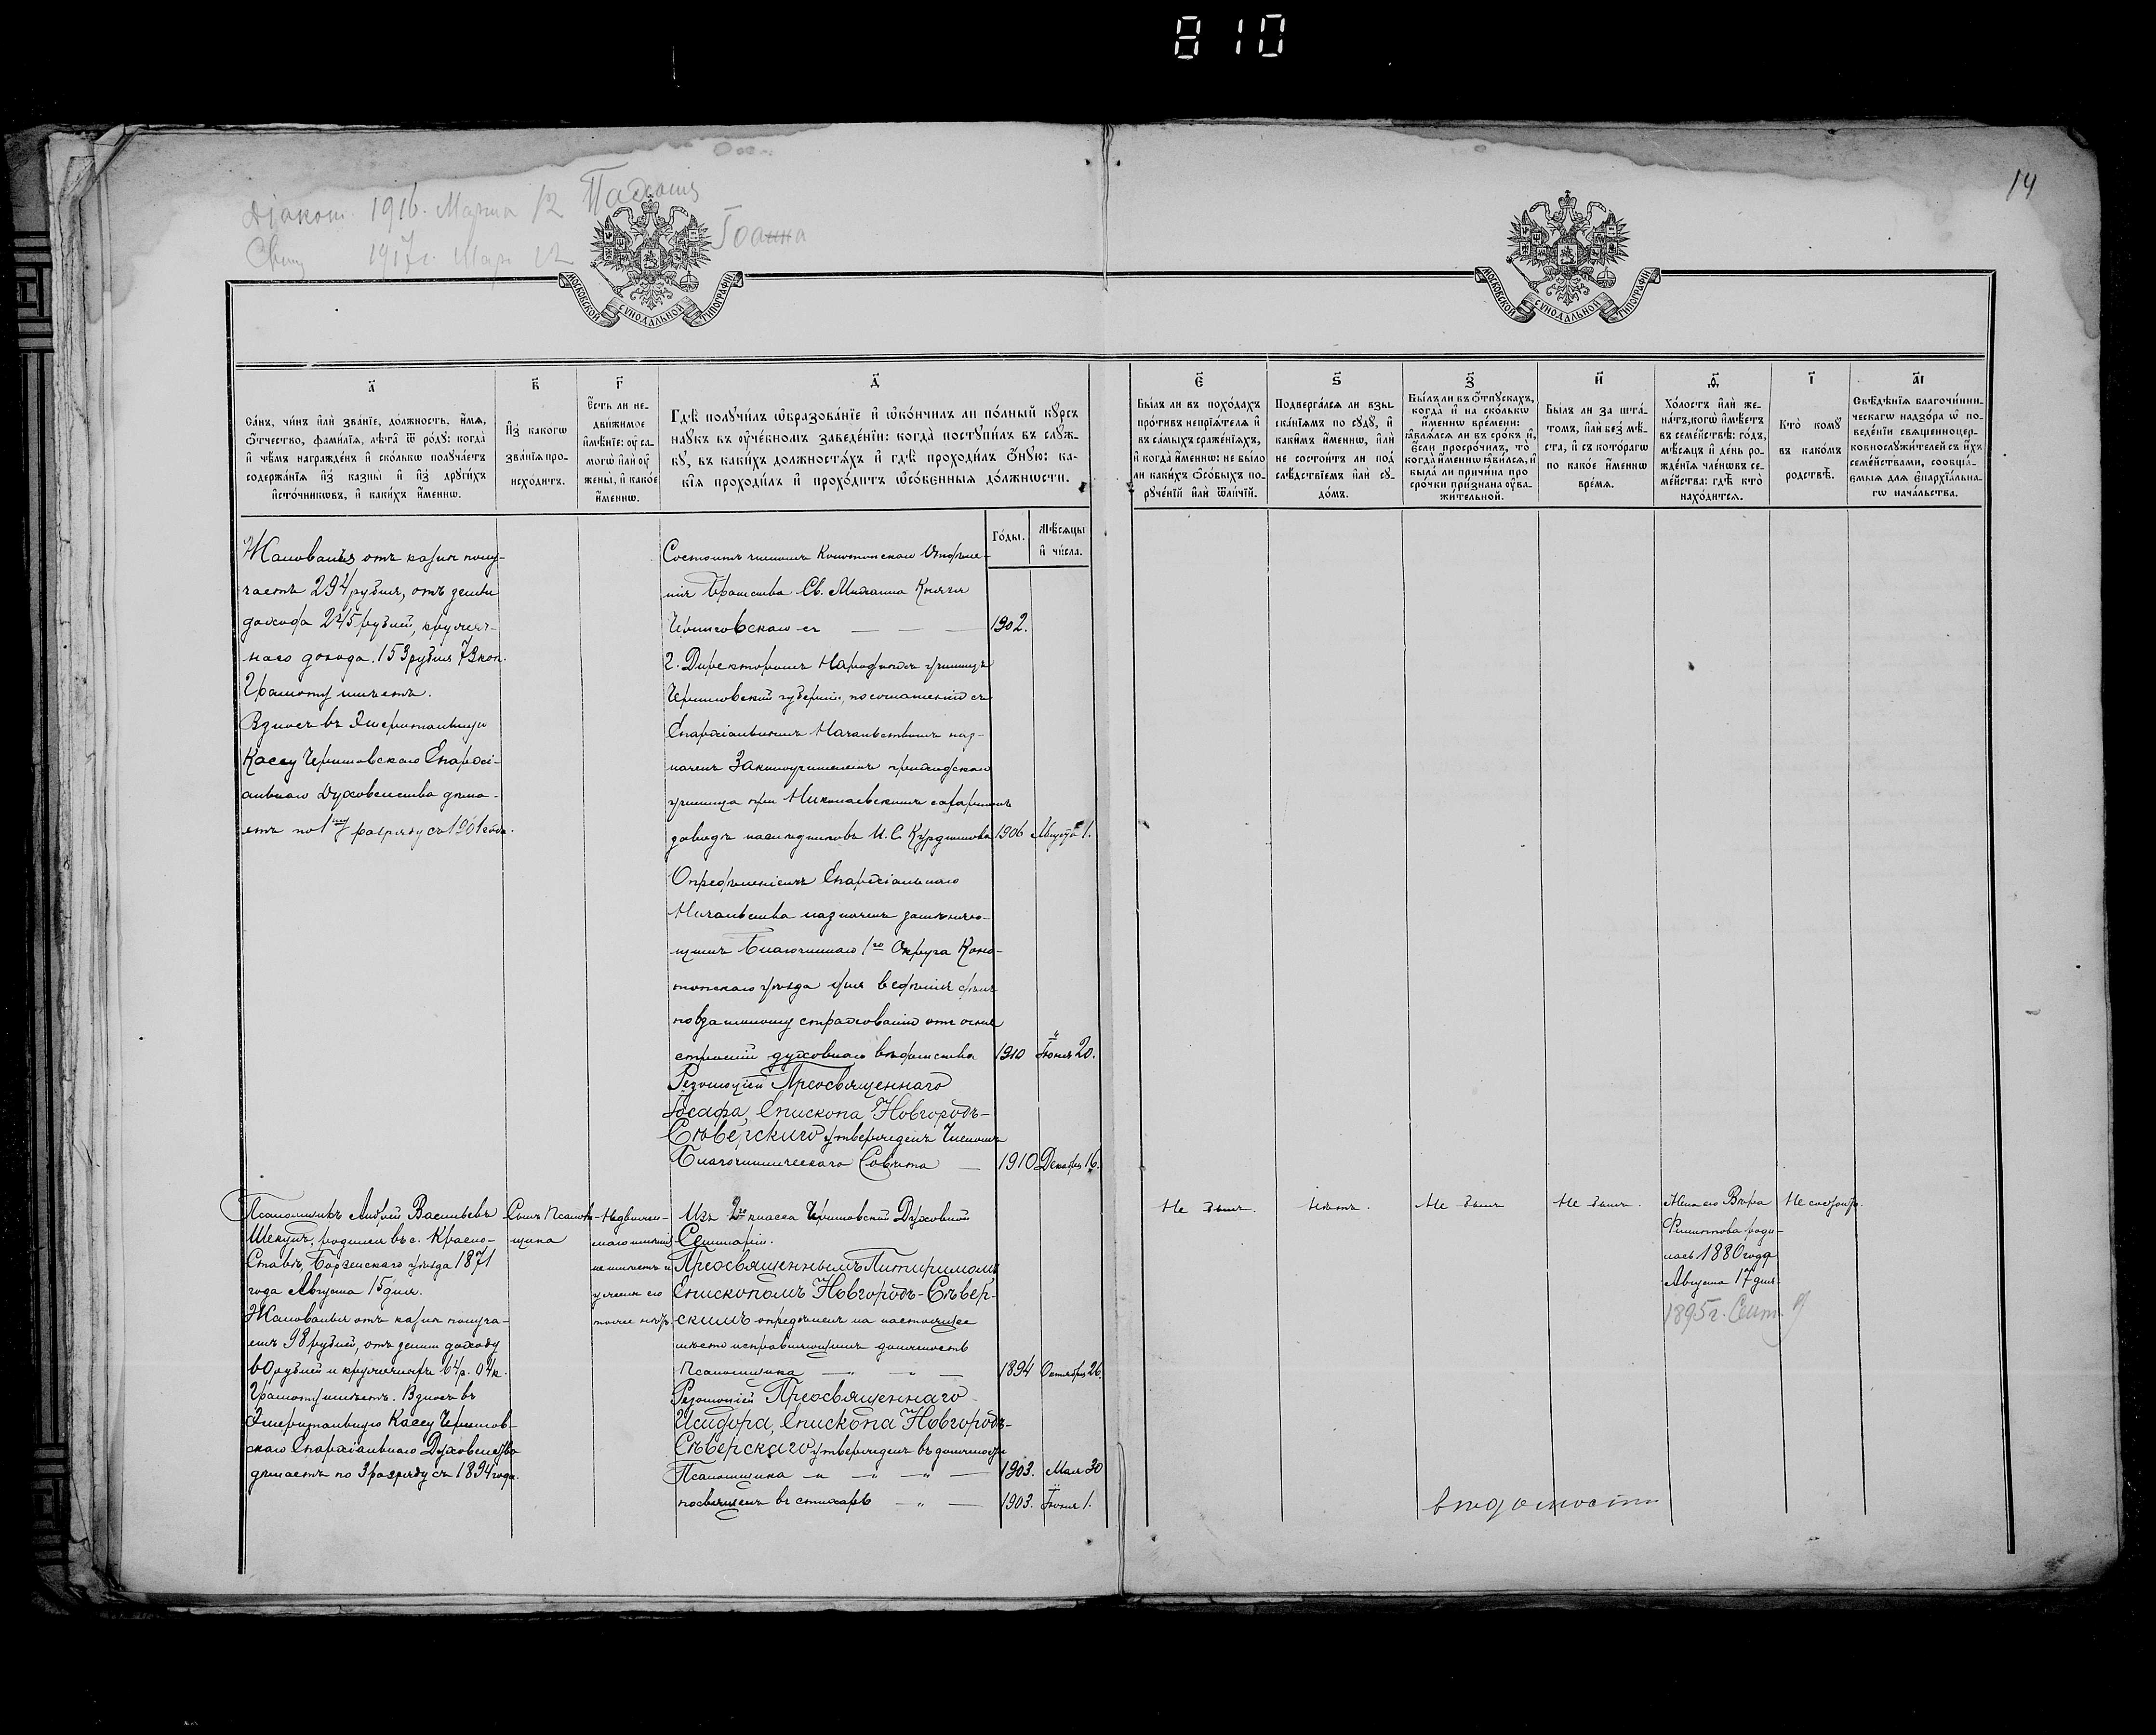 810
14
Діакон. 1916. Марта 12 Пахомія
Свящ 1917 г. Мар 12 Іоанна
МОСКОВСКОЙ СѴНОДАЛЬНОЙ ТИПОГРАФІИ
МОСКОВСКОЙ СѴНОДАЛЬНОЙ ТИПОГРАФІИ
а҃
Са́нъ, чи́нъ и҆лѝ зва́нїе, до́лжность, и҆́мѧ,
ѻ҆́тчество, фами́лїѧ, лѣ́та ѿ ро́дꙋ: когда̀
и҆ чѣ́мъ награжде́нъ и҆ ско́лькѡ полꙋча́етъ
содержа́нїѧ и҆з̾ казны̀ и҆ и҆з̾ дрꙋги́хъ
и҆сто́чникѡвъ, и҆ каки́хъ и҆́меннѡ.
в҃
И҆з̾ како́гѡ
зва́нїѧ про-
исхо́дитъ.
г҃
Є҆́сть ли не-
дви́жимое
и҆мѣ́нїе: ᲂу҆ са-
могѡ̀ и҆лѝ ᲂу҆
жены̀, и҆ како́е
и҆́меннѡ.
д҃
Гдѣ̀ полꙋчи́лъ ѡ҆бразова́нїе и҆ ѡ҆ко́нчилъ ли по́лный кꙋ́рсъ
наꙋ́къ въ ᲂу҆че́бномъ заведе́нїи: когда̀ постꙋпи́лъ въ слꙋ́ж-
бꙋ, въ каки́хъ до́лжностѧхъ и҆ гдѣ̀ проходи́лъ ѻ҆́нꙋю: ка-
кі̑ѧ проходи́лъ и҆ прохо́дитъ ѡ҆со́бєнныѧ до́лжнѡсти.
Го́ды.
Мѣ́сѧцы
и҆ чи́сла.
є҃
Бы́лъ ли въ похо́дахъ
про́тивъ непрїѧ́телѧ и҆
въ са́мыхъ сраже́нїѧхъ,
и҆ когда̀ и҆́меннѡ: не бы́ло
ли каки́хъ ѻ҆со́быхъ по-
рꙋче́нїй и҆лѝ ѿли́чїй.
ѕ҃
Подверга́лсѧ ли взы-
ска́нїѧмъ по сꙋдꙋ̀, и҆
каки́мъ и҆́меннѡ, и҆лѝ
не состои́тъ ли под̾
слѣ́дствїемъ и҆лѝ сꙋ-
до́мъ.
з҃
Бы́лъ ли въ ѻ҆́тпꙋскахъ,
когда̀ и҆ на ско́лькѡ
и҆́меннѡ вре́мени:
ꙗ҆влѧ́лсѧ ли въ сро́къ и҆,
є҆́сли просро́чилъ, то̀
когда̀ и҆́меннѡ ꙗ҆ви́лсѧ, и҆
была̀ ли причи́на про
сро́чки при́знана ᲂу҆ва-
жи́тельной.
и҃
Бы́лъ ли за шта́-
томъ, и҆лѝ без̾ мѣ́-
ста, и҆ съ кото́рагѡ
по како́е и҆́меннѡ
вре́мѧ.
ѳ҃
Хо́лостъ и҆лѝ же-
на́тъ, когѡ̀ и҆мѣ́етъ
въ семе́йствѣ: го́дъ,
мѣ́сѧцъ и҆ де́нь ро-
жде́нїѧ чле́нѡвъ се-
ме́йства: гдѣ̀ кто̀
нахо́дитсѧ.
і҃
Кто̀ комꙋ̀
въ како́мъ
родствѣ̀.
аі҃
Свѣ́дѣнїѧ благочи́нни-
ческагѡ надзо́ра ѡ҆ по-
веде́нїи свѧщенноцер-
ковнослꙋжи́телей съ и҆́хъ
семе́йствами, сообща́-
ємыѧ длѧ Є҆парїхїа́льна-
гѡ нача́льства.
Жалованья отъ казны полу-
чаетъ 294 рубля, отъ земли
дохода 245 рублей, кружеч-
наго дохода 153 рубля 73 коп.
Грамоту имѣетъ.
Взносъ въ Эмеритальную
Кассу Черниговскаго Епархі-
альнаго Духовенства дѣла-
етъ по 1му разряду съ 1901 года.
Состоитъ членомъ Конотопскаго Отдѣле-
нія Братства Св. Михаила Князя
Черниговскаго съ 1902.
2. Директоромъ Народныхъ училищъ
Черниговской губерніи, по соглашенію съ
Епархіальнымъ Начальствомъ наз-
наченъ Законоучителемъ приходскаго
училища при Николаевскомъ сахарномъ
заводѣ наслѣдниковъ И. С. Курдюмова 1906 Августа 1.
Опредѣленіемъ Епархіальнаго
Начальства назначенъ замѣняю-
щимъ Благочиннаго 1го Округа Коно-
топскаго уѣзда для веденія дѣлъ
по взаимному страхованію отъ огня
строеній духовнаго вѣдомства 1910 Іюня 20.
Резолюціей Преосвященнаго
Іоасафа, Епископа Новгородъ-
Сѣверскаго утвержденъ Членомъ
Благочинническаго Совѣта 1910 Декабря 16.
Псаломщикъ Андрей Васильевъ
Шекунъ, родился въ с. Красно-
Ставѣ, Борзенскаго уѣзда 1871
года Августа 15 дня.
Жалованья отъ казны получа-
етъ 98 рублей, отъ земли доходу
80 рублей и кружечнаго 64 р. 04 к.
Грамоту имѣетъ. Взносъ въ
Эмеритальную Кассу Чернигов-
скаго Епархіальнаго Духовенства
дѣлаетъ по 3 разряду съ 1894 года.
Сынъ Псалом-
щика
Недвижи-
маго имѣнія
не имѣетъ и
у жены его
тоже нѣтъ
Изъ 2го класса Черниговской Духовной
Семинаріи.
Преосвященнымъ Питиримомъ
Епископомъ Новгородъ-Сѣвер-
скимъ опредѣленъ на настоящее
мѣсто исправляющимъ должность
Псаломщика 1894 Октября 26.
Резолюціей Преосвященнаго
Исидора, Епископа Новгородъ-
Сѣверскаго утвержденъ въ должности
Псаломщика 1903. Мая 30
посвященъ въ стихарь 1903. Іюня 1.
Не былъ.
Нѣтъ.
Не былъ
Не былъ.
Жена его Вѣра
Филиппова роди-
лась 1880 года
Августа 17 дня.
1895 г. Сент. 9
Не состоитъ.
вѣдомости